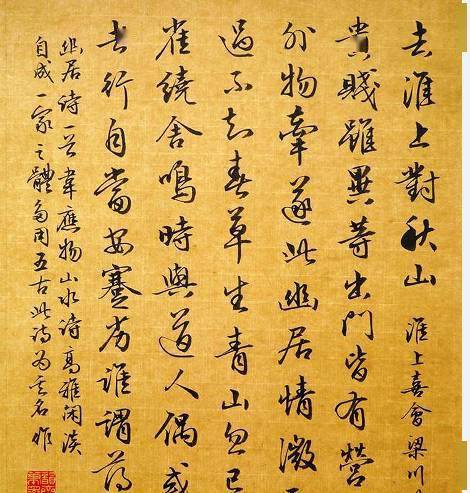 去淮上對秋山 淮上喜會梁川
貴賤雖異等出門皆有營
外物牽遂此幽居情微
過不知春草生青山忽已
雀繞舍鳴時與道人偶或
者行自當安蹇劣誰謂薄
幽居诗一首韋應物山水诗高雅閑淡
自成一家之體多用五古此诗为其名作